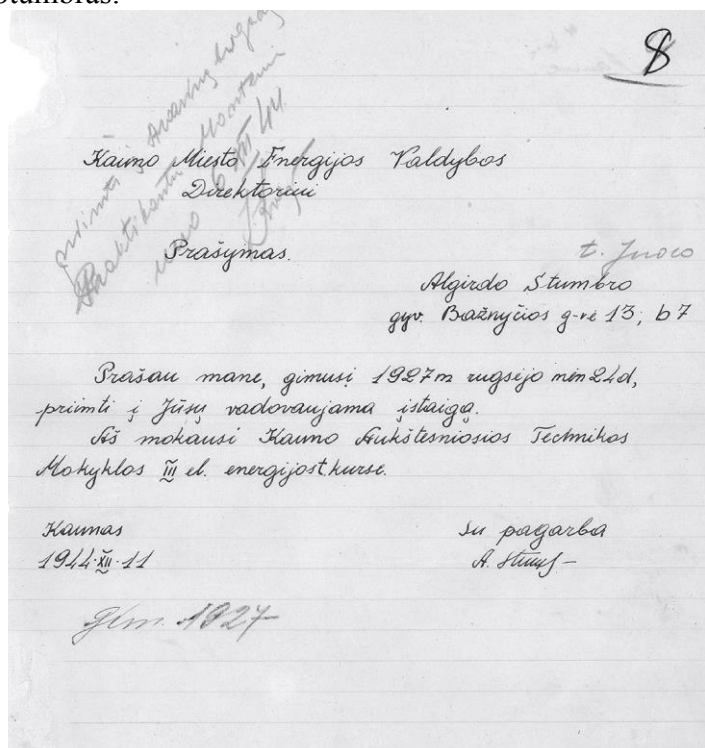 8
priimti į Avarinę brigadą
Praktikantu Monteriu
nuo 6 XII 44
Kauno Miesto Energijos Valdybos
Direktoriui
Prašymas.
t. Juozo
Algirdo Stumbro
gyv. Bažnyčios g-vė 13, b 7
Prašau mane, gimusį 1927m rugsėjo mėn 24d,
priimti į Jūsų vadovaujama įstaigą.
Aš mokausi Kauno Aukštesniosios Technikos
Mokyklos III el. energijos t. kurse.
Kaunas
su pagarba
1944·XII·11
A. Stumb
gim. 1927